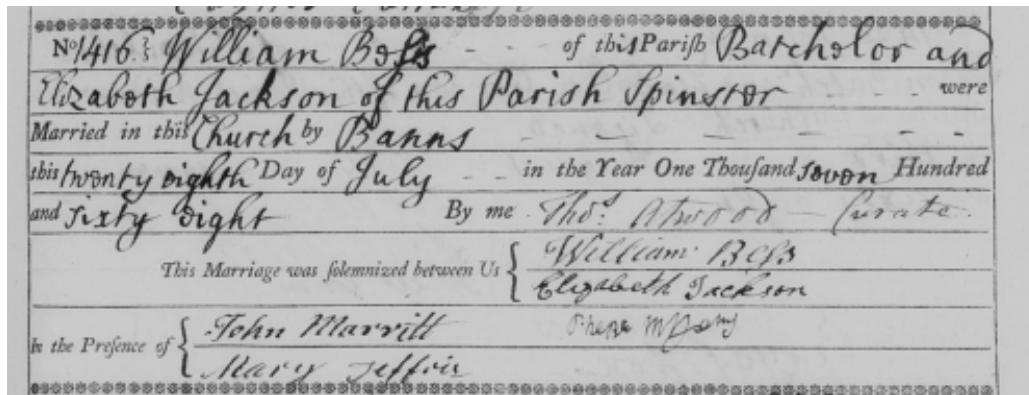 No 1416 William Beſs - - of this Pariſh Batchelor and
Elizabeth Jackson of this Parish Spinster were
Married in this Church by Banns
this twenty eighth Day of July - - in the Year One Thouſand seven Hundred
and sixty eight By me Thos. Atwood Curate.
This Marriage was ſolemnized between Us { William Beſs
Elizabeth Jackson
In the Preſence of { John Marritt
Mary